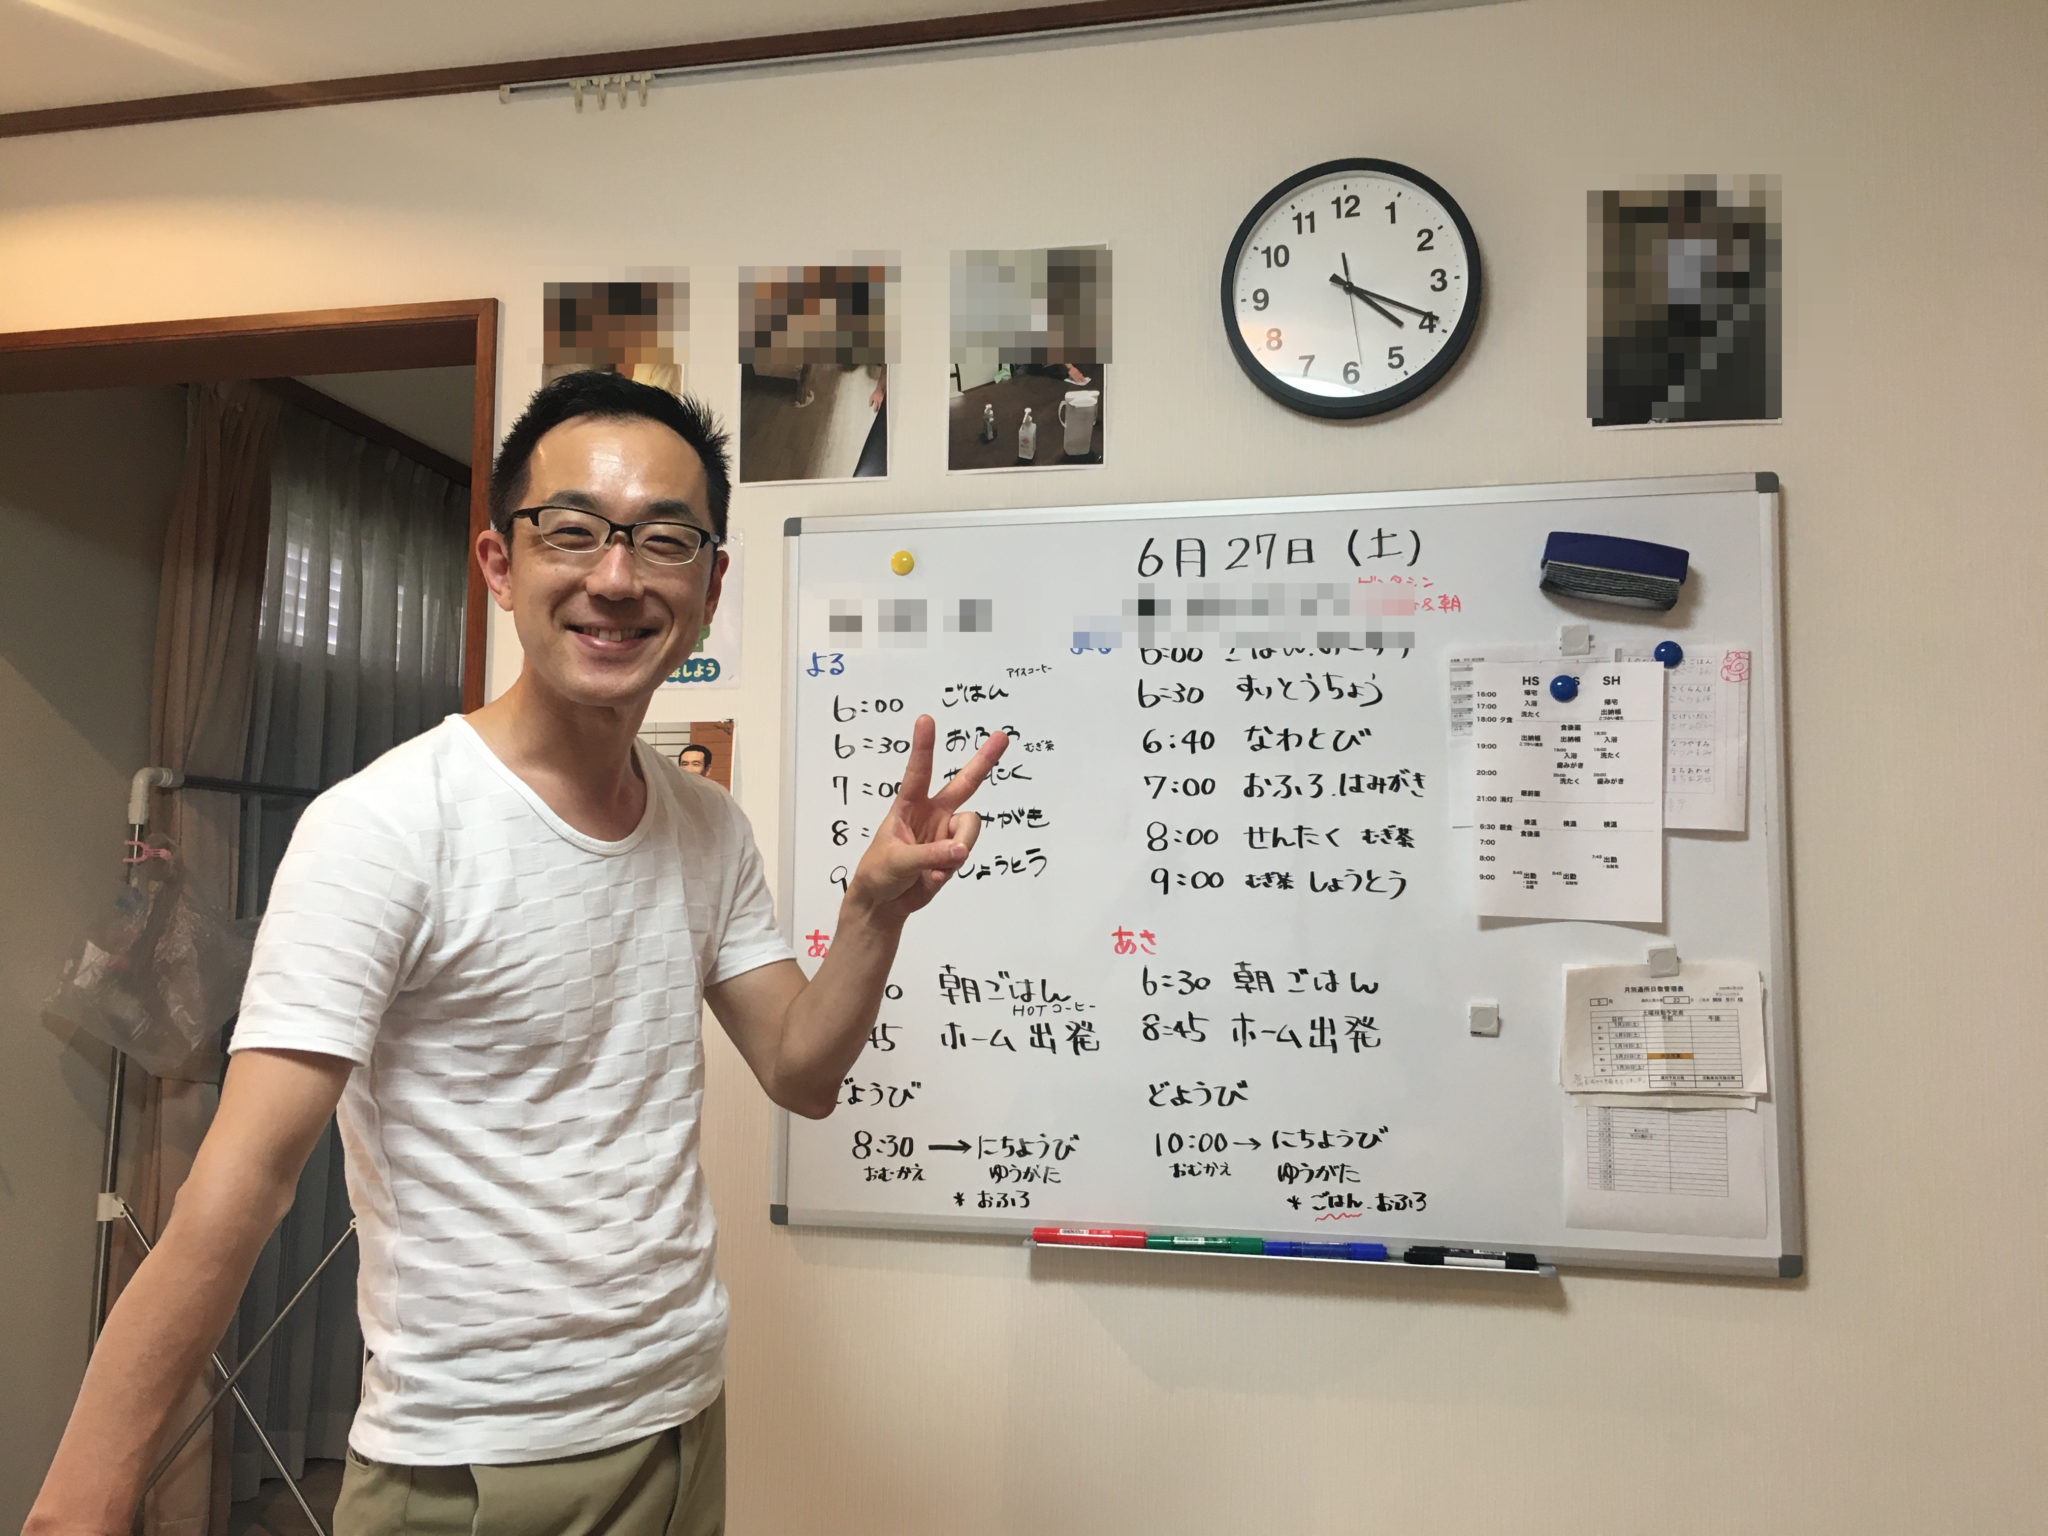 12
1
2
3
4
5
6
7
8
9
10
11
しよう
6月27日(土)
&朝
よる
6:00 ごはん アイスコーヒー
6:30 おふろ むぎ茶
7:00
8: みがき
9 しょうとう
6:00 ごはん
6:30 すいとうちょう
6:40 なわとび
7:00 おふろ.はみがき
8:00 せんたく むぎ茶
9:00 むぎ茶 しょうとう
あ
0 朝ごはん
HOTコーヒー
45 ホーム出発
あさ
6:30 朝ごはん
8:45 ホーム出発
どようび
8:30 → にちようび
おむかえ ゆうがた
* おふろ
どようび
10:00 → にちようび
おむかえ ゆうがた
* ごはん.おふろ
HS S SH
16:00 帰宅 帰宅
17:00 入浴 出納帳
洗たく
18:00 夕食 食後薬
19:00 出納帳 出納帳 入浴
入浴 洗たく
歯みがき
20:00 洗たく 歯みがき
21:00 消灯 眠前薬
6:30 朝食 検温 検温 検温
食後薬
7:00
8:00 7:45 出勤
9:00 8:45 出勤 8:45 出勤
さくらんぼ
なつやすみ
まちあわせ
月別通所日数管理表
5月 22
土曜稼動予定表
日付 午前 午後